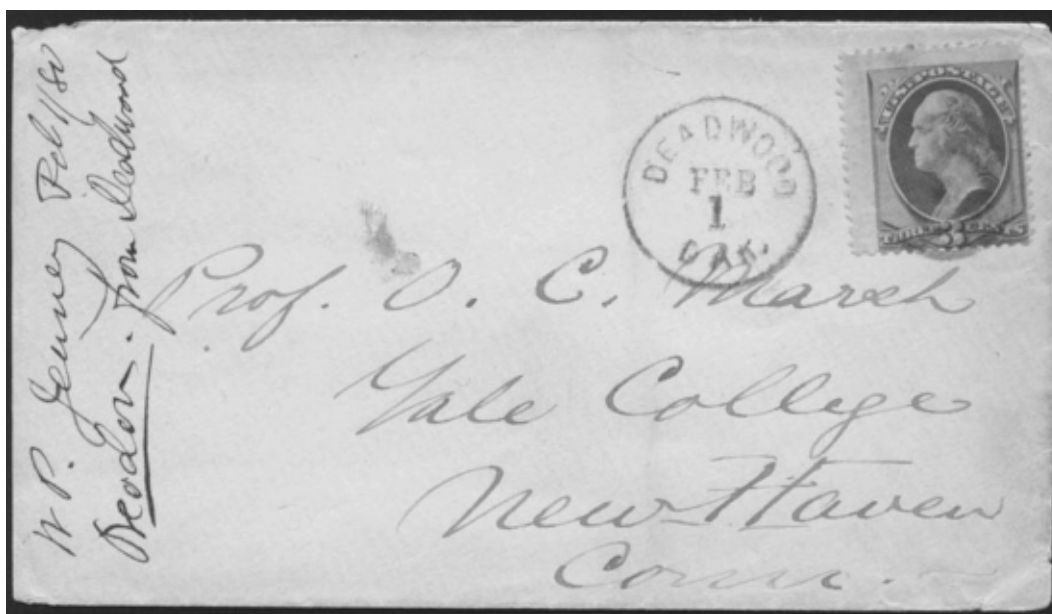 W P. Jenney Feb 1/80
from Deadwood
DEADWOOD
FEB
1
DAK.
U.S. POSTAGE
THREE 3 CENTS
Prof. O. C. Marsh
Yale College
New Haven
Conn.